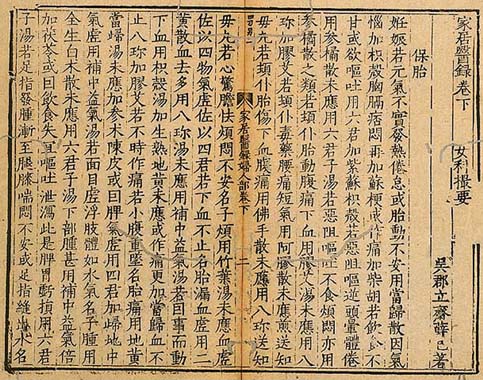 家居醫錄卷下 女科撮要
吳郡立齋薛己著
保胎
妊娠若元氣不實發熱倦怠或胎動不安用當歸散因氣
惱加枳殼胸膈痞悶再加蘇梗或作痛加柴胡若飲食不
甘或欲嘔吐用六君加紫蘇枳殼若惡阻嘔逆頭暈體倦
用參橘散未應用六君子湯若惡阻嘔吐不食煩悶亦用
參橘散之類若頓仆胎動腹痛下血用膠艾湯未應用八
珍加膠艾若頓仆毒藥腰痛短氣用阿膠散未應煎送知
毋丸若頓仆胎傷下血腹痛用佛手散未應用八珍送知
家居醫錄婦人部卷下 二
毋丸若心驚膽怯煩悶不安名子煩用竹葉湯未應血虛
佐以四物氣虛佐以四君若下血不止名胎漏血虛用二
黃散血去多用八珍湯未應用補中益氣湯若因事而動
下血用枳殼湯加生熟地黃未應或作痛更加當歸血不
止八珍加膠艾若不時作痛或小腹重墜名胎痛用地黃
當歸湯未應加參朮陳皮或因脾氣虛用四君加歸地中
氣虛用補中益氣湯若面目虛浮肢體如水氣名子腫用
全生白朮散未應用六君子湯下部腫甚用補中益氣倍
加茯苓或因飲食失宜嘔吐泄瀉此是脾胃虧損用六君
子湯若足指發腫漸至腿膝喘悶不安或足指縫出水名